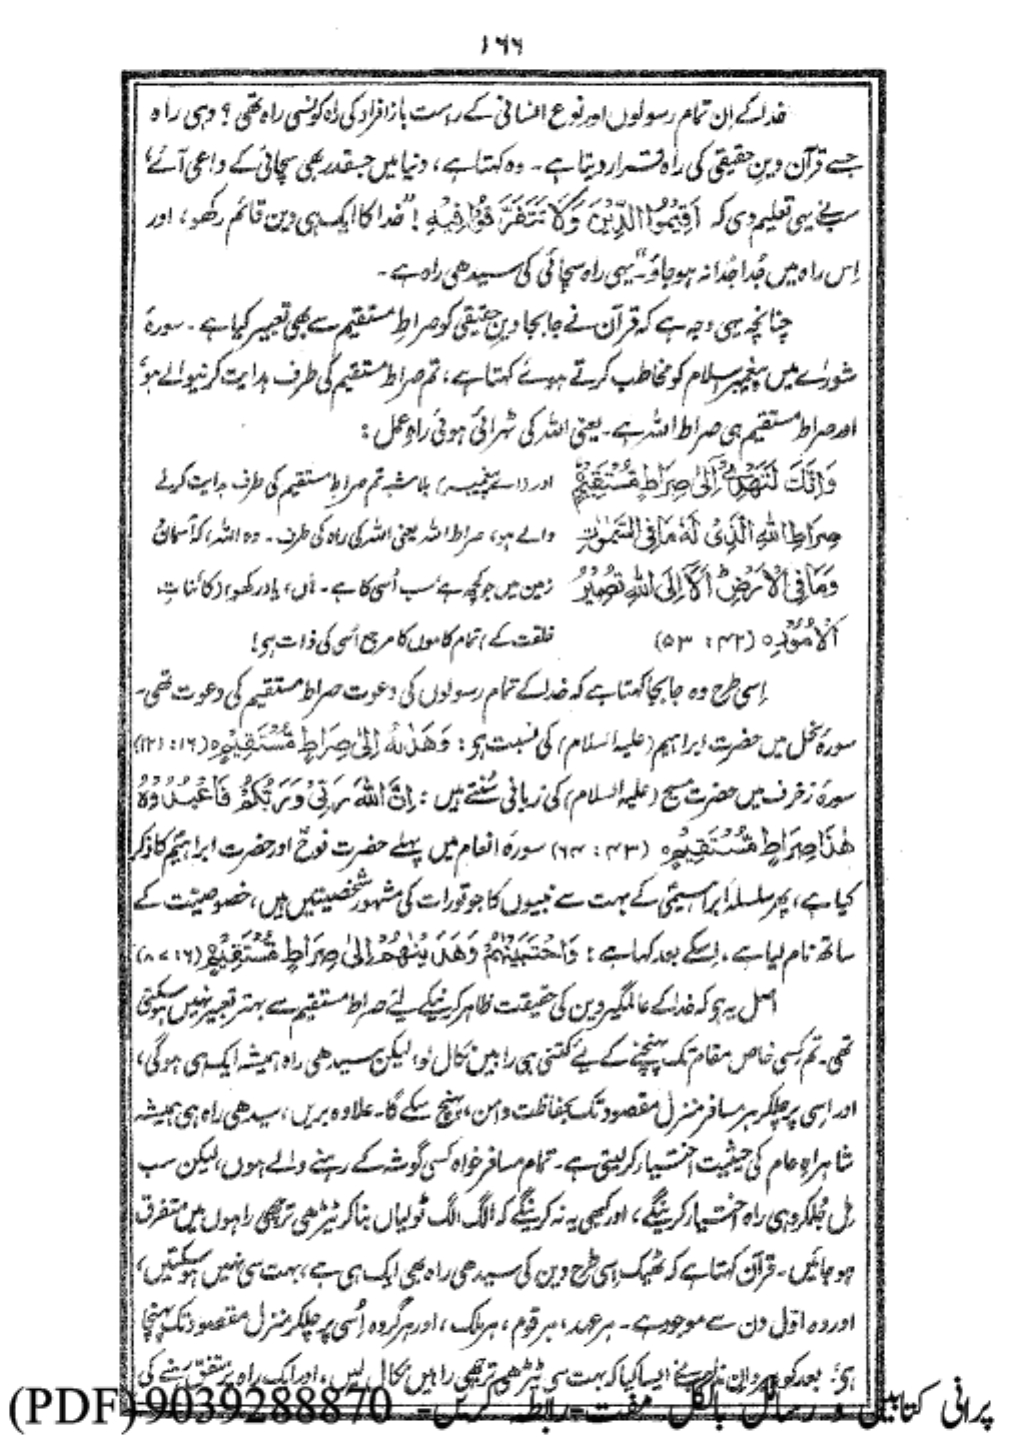 ۱۶۶
خدا کے اِن تمام رسولوں اور نوع انسانی کے راست باز افراد کی راہ کونسی راہ تھی؟ وہی راہ
جسے قرآن دینِ حقیقی کی راہ قرار دیتا ہے۔ وہ کہتا ہے، دنیا میں جسقدر بھی سچائی کے داعی آئے،
سب نے یہی تعلیم دی کہ اَقِیْمُوا الدِّیْنَ وَلَا تَتَفَرَّقُوْا فِیْهِ! "خدا کا ایک ہی دین قائم رکھو، اور
اِس راہ میں جُدا جُدا نہ ہو جاؤ" یہی راہ سچائی کی سیدھی راہ ہے۔
چنانچہ یہی وجہ ہے کہ قرآن نے جا بجا دینِ حقیقی کو صراطِ مستقیم سے بھی تعبیر کیا ہے۔ سورۂ
شوریٰ میں پیغمبرِ اسلام کو مخاطب کرتے ہوئے کہتا ہے، تم صراطِ مستقیم کی طرف ہدایت کرنیوالے ہو،
اور صراطِ مستقیم ہی صراط اللہ ہے۔ یعنی اللہ کی ٹہرائی ہوئی راہِ عمل:
وَاِنَّكَ لَتَهْدِیْٓ اِلٰی صِرَاطٍ مُّسْتَقِیْمٍ اور (اے پیغمبر!) بلاشبہ تم صراطِ مستقیم کی طرف ہدایت کرنے
صِرَاطِ اللّٰهِ الَّذِیْ لَهٗ مَا فِی السَّمٰوٰتِ والے ہو، صراط اللہ یعنی اللہ کی راہ کی طرف۔ وہ اللہ، کہ آسمان و
وَمَا فِی الْاَرْضِ ؕ اَلَآ اِلَی اللّٰهِ تَصِیْرُ زمین میں جو کچھ ہے سب اُسی کا ہے۔ ہاں، یاد رکھو، (کائناتِ
الْاُمُوْرُ ۝ (۴۲: ۵۳) خلقت کے) تمام کاموں کا مرجع اُسی کی ذات ہی!
اِسی طرح وہ جا بجا کہتا ہے کہ خدا کے تمام رسولوں کی دعوت صراطِ مستقیم کی دعوت تھی۔
سورۂ نحل میں حضرت ابراہیم (علیہ السلام) کی نسبت ہی: وَهَدٰىهُ اِلٰی صِرَاطٍ مُّسْتَقِیْمٍ ۝ (۱۶: ۱۲۱)
سورۂ زخرف میں حضرت مسیح (علیہ السلام) کی زبانی سُنتے ہیں: اِنَّ اللّٰهَ رَبِّیْ وَرَبُّكُمْ فَاعْبُدُوْهُ
هٰذَا صِرَاطٌ مُّسْتَقِیْمٌ ۝ (۴۳: ۶۴) سورۂ انعام میں پہلے حضرت نوحؑ اور حضرت ابراہیمؑ کا ذکر
کیا ہے، پھر سلسلۂ ابراہیمی کے بہت سے نبیوں کا جو تورات کی مشہور شخصیتیں ہیں، خصوصیت کے
ساتھ نام لیا ہے، اِسکے بعد کہا ہے: وَاجْتَبَیْنٰهُمْ وَهَدَیْنٰهُمْ اِلٰی صِرَاطٍ مُّسْتَقِیْمٍ (۶: ۸۷)
اصل یہ ہی کہ خدا کے عالمگیر دین کی حقیقت ظاہر کرنیکے لیے صراطِ مستقیم سے بہتر تعبیر نہیں ہو سکتی
تھی۔ تم کسی خاص مقام تک پہنچنے کے لیے کتنی ہی راہیں نکال لو، لیکن سیدھی راہ ہمیشہ ایک ہی ہوگی،
اور اِسی پر چلکر ہر مسافر منزلِ مقصود تک بحفاظت و امن پہنچ سکے گا۔ علاوہ بریں، سیدھی راہ ہی ہمیشہ
شاہراہِ عام کی حیثیت اختیار کر لیتی ہے۔ تمام مسافر خواہ کسی گوشہ کے رہنے والے ہوں، لیکن سب
مِل جُلکر وہی راہ اختیار کرینگے، اور کبھی یہ نہ کرینگے کہ الگ الگ ٹولیاں بنا کر ٹیڑھی ترچھی راہوں میں متفرق
ہو جائیں۔ قرآن کہتا ہے کہ ٹھیک اِسی طرح دین کی سیدھی راہ بھی ایک ہی ہے، بہت سی نہیں ہو سکتیں،
اور وہ اوّل دن سے موجود ہے۔ ہر عہد، ہر قوم، ہر ملک، اور ہر گروہ اُسی پر چلکر منزلِ مقصود تک پہنچا
ہی، بعد کو پیروانِ مذاہب نے ایسا کیا کہ بہت سی ٹیڑھی ترچھی راہیں نکال لیں، اور ایک راہ پر متفق رہنے کی
پرانی کتابیں و رسائل بالکل مفت - رابطہ کریں - 9039288870 (PDF)